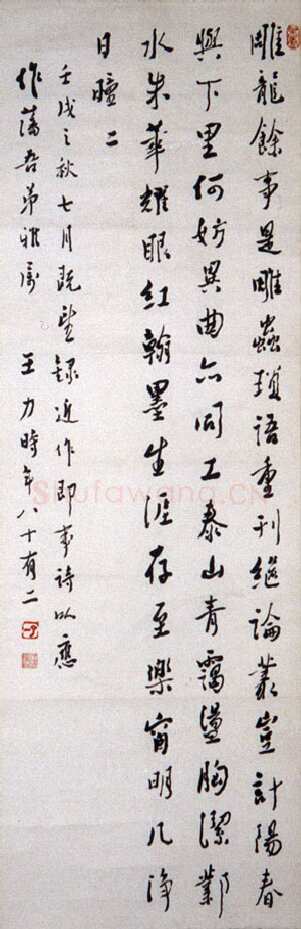 雕龍餘事是雕蟲瑣語重刊繼論叢豈計陽春
與下里何妨異曲亦同工泰山青靄盪胸潔鄴
水朱華耀眼紅翰墨生涯存至樂窗明几淨
日曈二
壬戌之秋七月既望錄近作即事詩以應
作藩吾弟雅屬 王力時年八十有二
Shufawang.CN